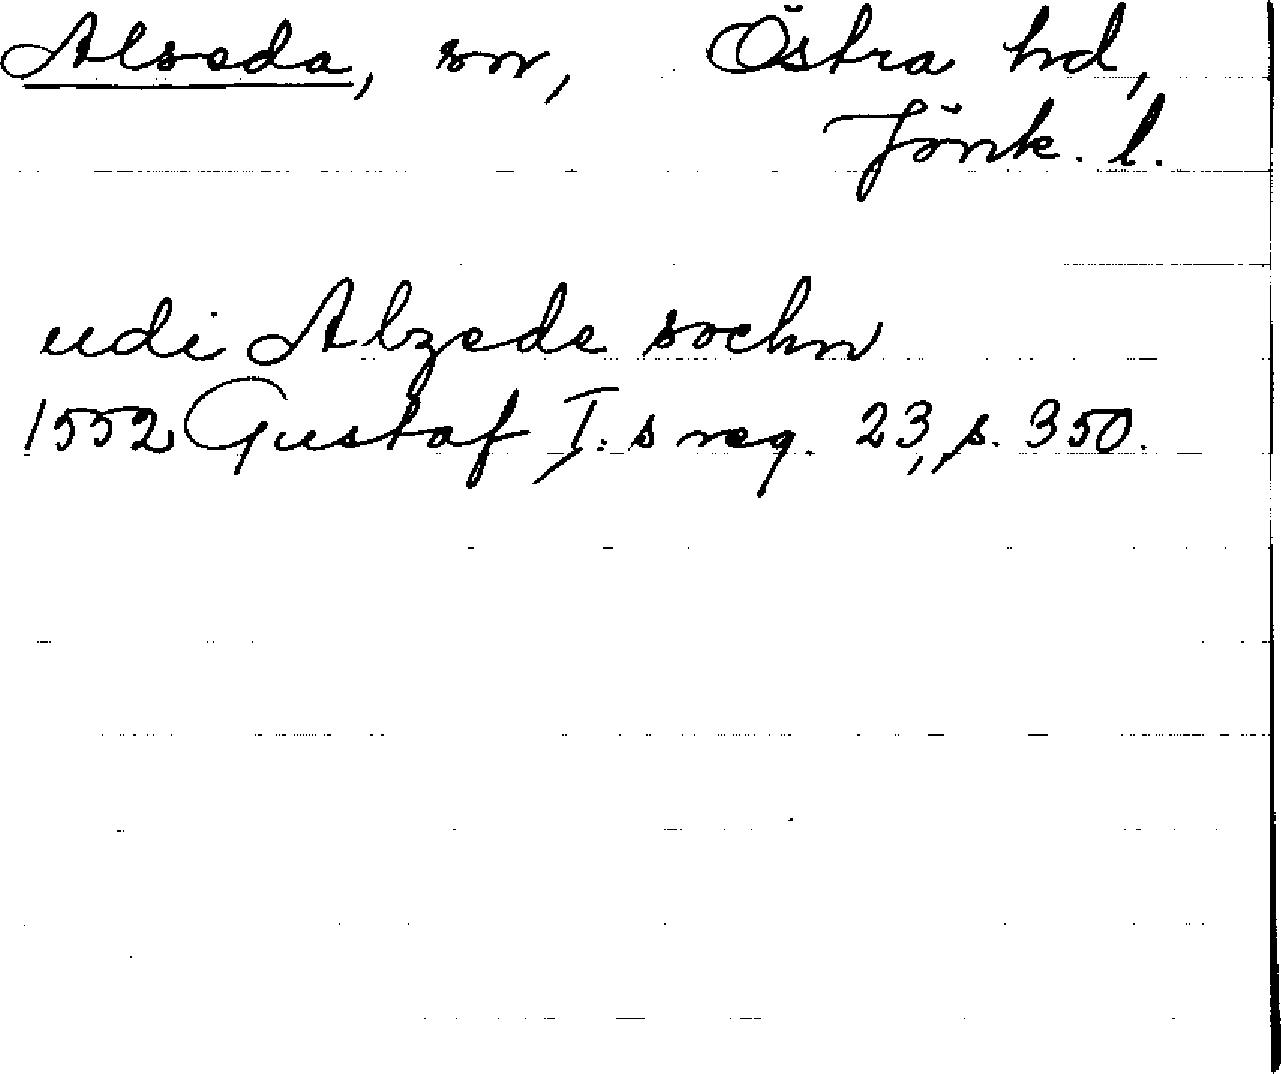 Alseda, sn, Östra hd,
Jönk. l.
udi Alzede sochn
1552 Gustaf I:s reg. 23, s. 350.